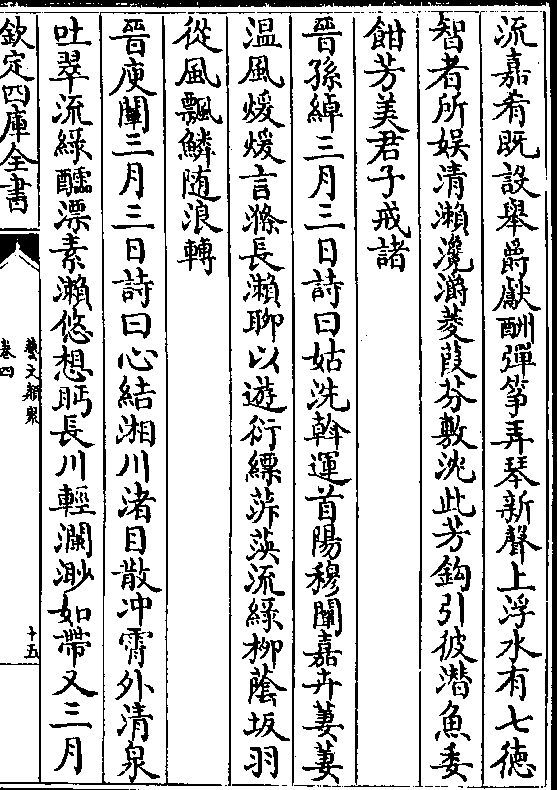 流嘉肴既設舉爵獻酬彈箏弄琴新聲上浮水有七徳
智者所娱清瀨瀺灂菱葭芬敷沈此芳鈎引彼潛魚委
餌芳美君子戒諸
晉孫綽三月三日詩曰姑洗斡運首陽穆闡嘉卉萋萋
温風煖煖言滌長瀨聊以遊衍縹萍𦶜流綠柳蔭坂羽
從風飄鱗随浪轉
晉庾闡三月三日詩曰心結湘川渚目散冲霄外清泉
吐翠流綠醽漂素瀨悠想盻長川輕瀾渺如帶又三月
欽定四庫全書
藝文類聚
卷四
十五